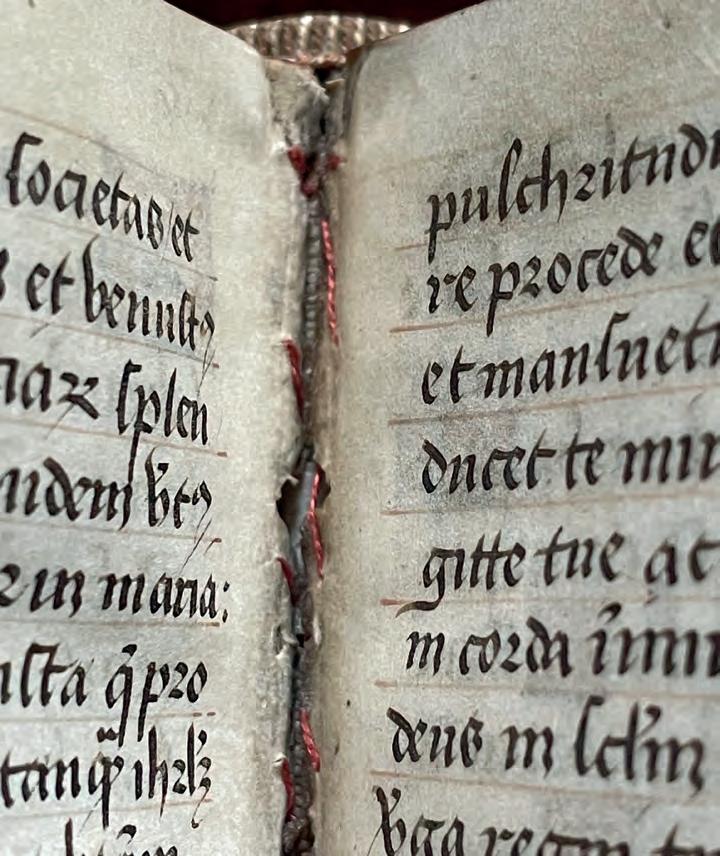 societas et
et venust9
splen
ndem
in maria:
ista q̄ pro
tanq̃ ihrl̄z
pulchritudi
re procede et
et mansuet
ducet te mir
gitte tue ac
in corda inimi
deus in sclm̄
v̄ga regni tu